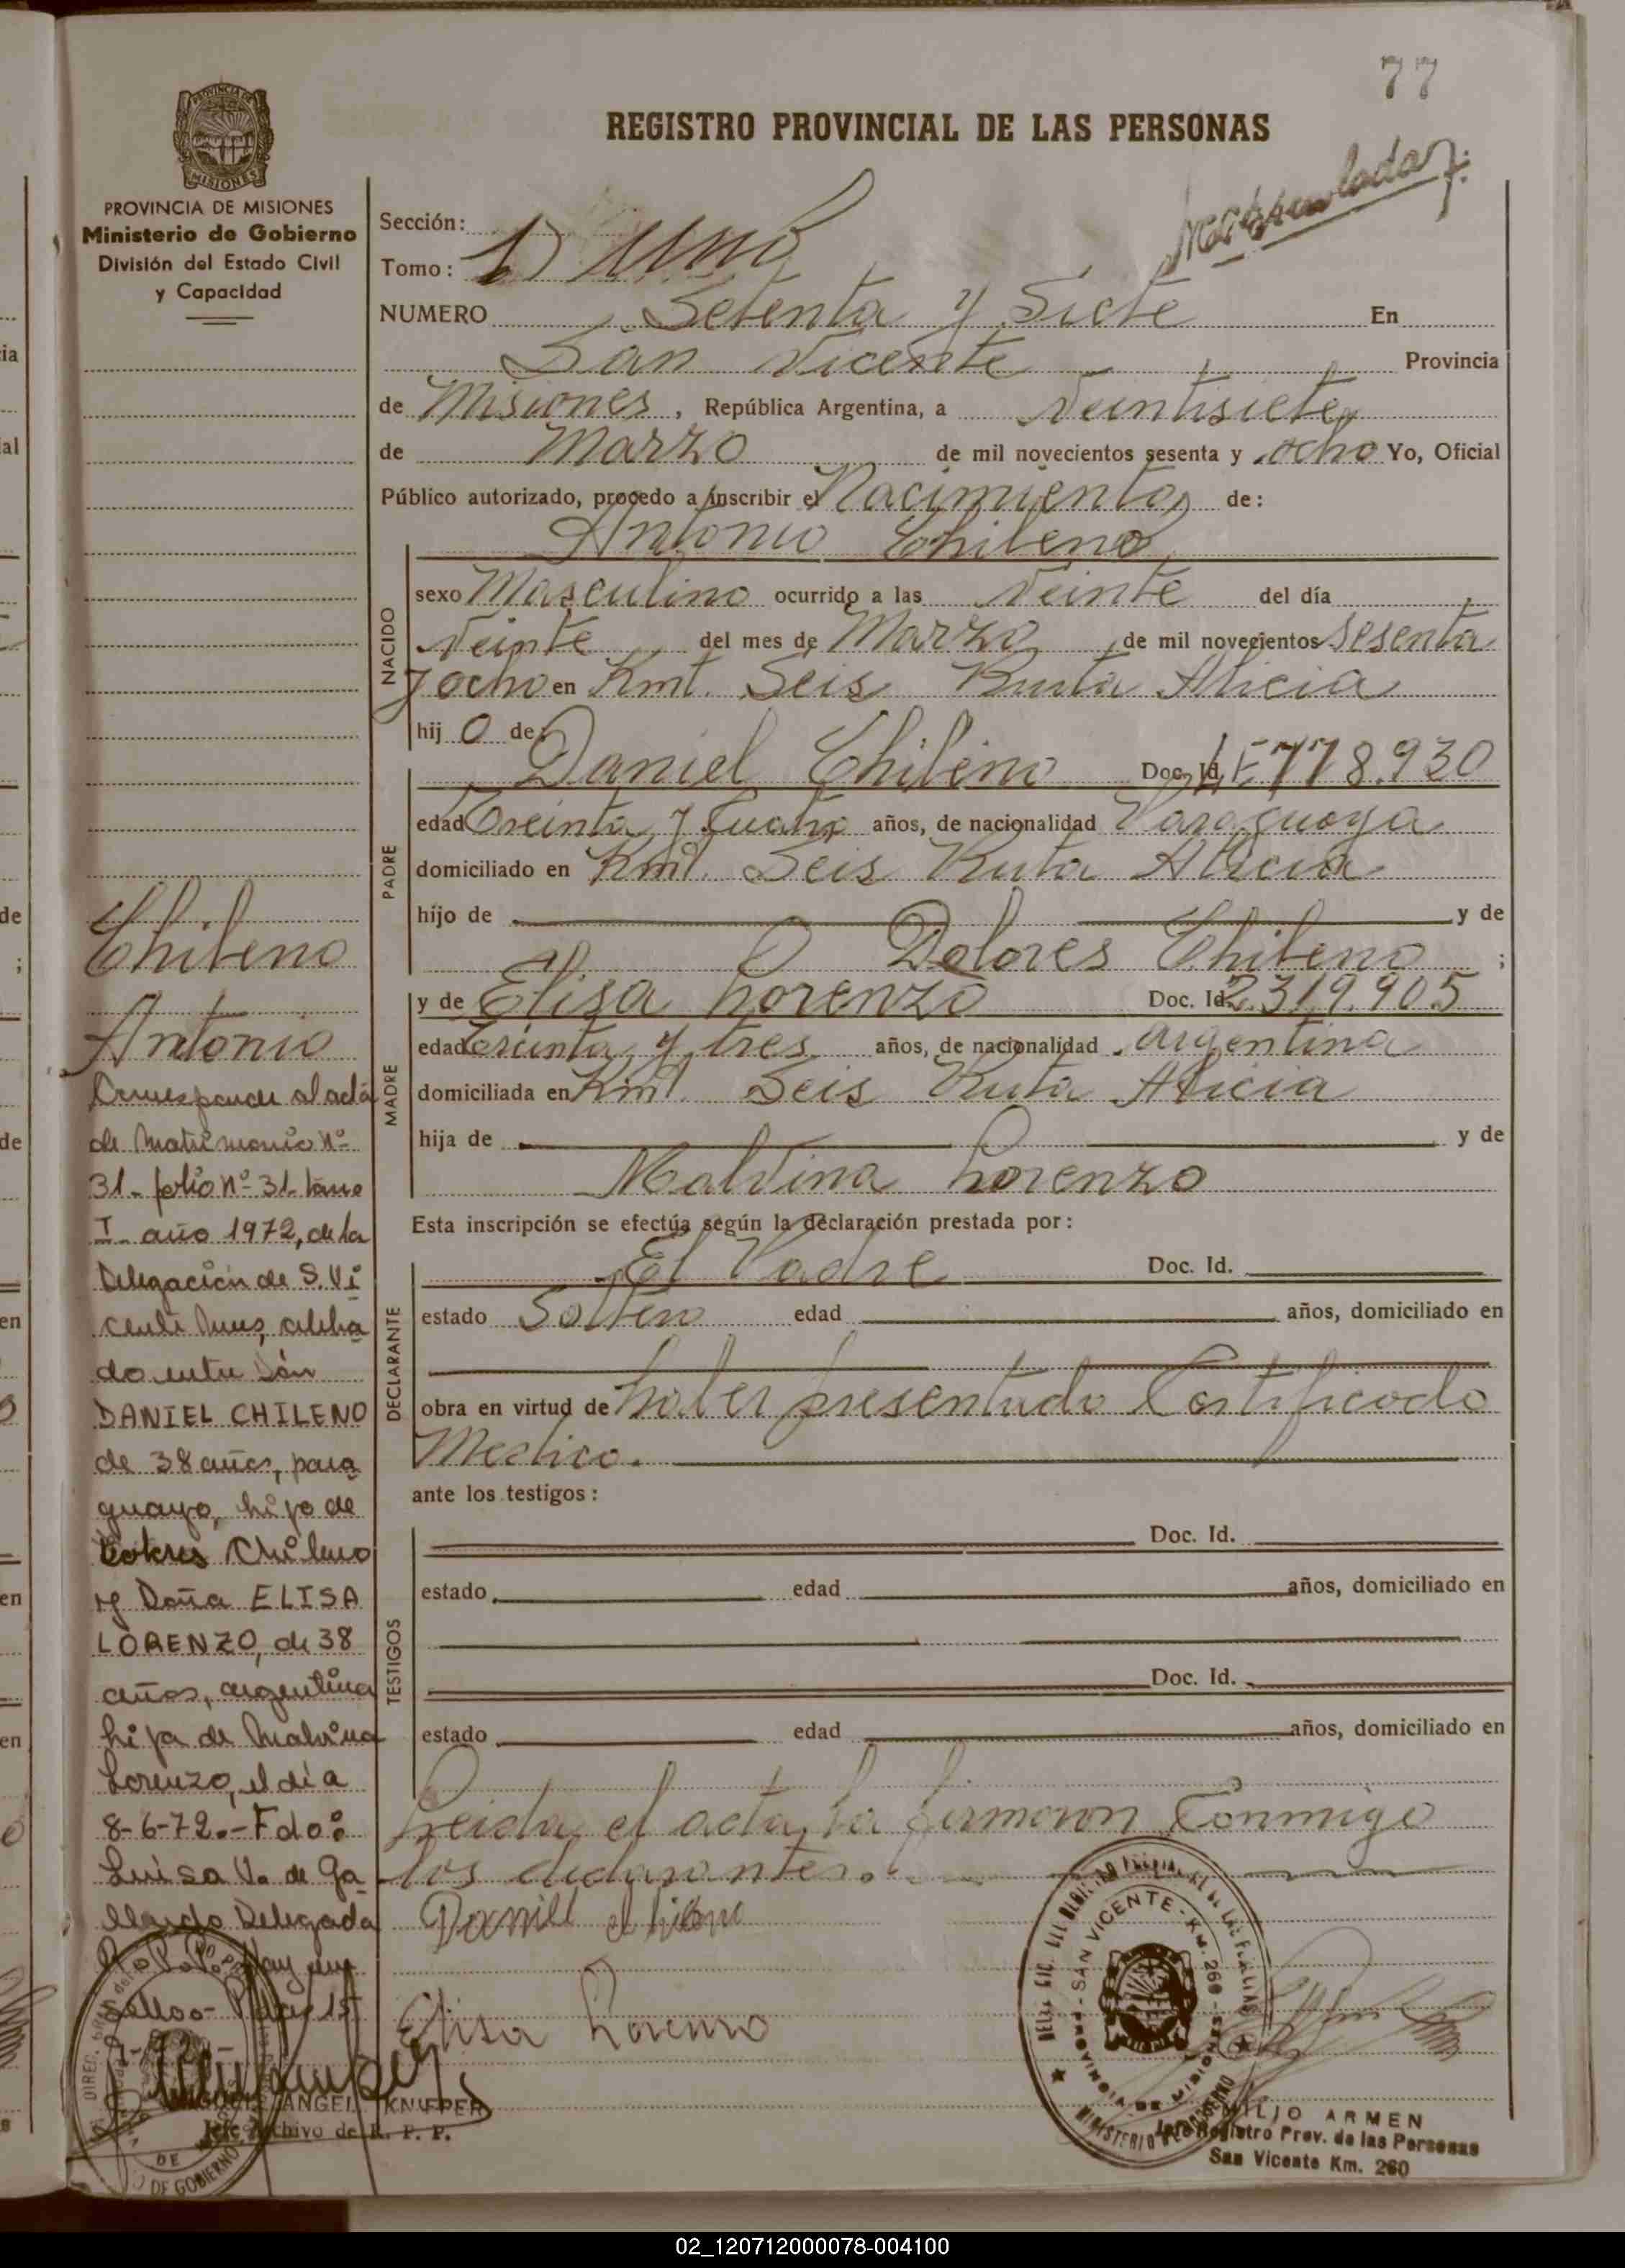 77
REGISTRO PROVINCIAL DE LAS PERSONAS
PROVINCIA DE MISIONES
Ministerio de Gobierno
División del Estado Civil
y Capacidad
Sección:
Tomo: 1) Uno
NUMERO Setenta y Siete En
San Vicente Provincia
de Misiones, República Argentina, a Veintisiete
de Marzo de mil novecientos sesenta y ocho Yo, Oficial
Público autorizado, procedo a inscribir el Nacimiento de:
Antonio Chileno
NACIDO
sexo Masculino ocurrido a las Veinte del día
Veinte del mes de Marzo de mil novecientos Sesenta
y ocho en Kmt. Seis Ruta Alicia
hijo de
Daniel Chileno Doc. Id. LE 778.930
PADRE
edad Treinta y Cuatro años, de nacionalidad Paraguaya
domiciliado en Kmt. Seis Ruta Alicia
hijo de y de
Dolores Chileno ;
MADRE
y de Elisa Lorenzo Doc. Id. 2.319.905
edad treinta y tres años, de nacionalidad argentina
domiciliada en Kmt. Seis Ruta Alicia
hija de y de
Malvina Lorenzo
Esta inscripción se efectúa según la declaración prestada por:
DECLARANTE
El Padre Doc. Id.
estado Soltero edad años, domiciliado en
obra en virtud de haber presentado Certificado
Medico.
ante los testigos:
TESTIGOS
Doc. Id.
estado edad años, domiciliado en
Doc. Id.
estado edad años, domiciliado en
Leida el acta la firmaron Conmigo
los declarantes.
Elisa Lorenzo
Chileno
Antonio
Corresponde al acta
de Matrimonio Nº
31- folio nº 31- tomo
I- año 1972, de la
Delegación de S. Vi
cente Mnes, celebra
do entre Dón
DANIEL CHILENO
de 38 años, para
guayo, hijo de
Dolores Chileno
y Doña ELISA
LORENZO, de 38
años, argentina
hija de Malvina
Lorenzo, el día
8-6-72.- Fdo:
Luisa V. de Ga-
llardo Delegada
R. P. P. Hay un
sello.-
ANGEL KNIEPER
Jefe Archivo de R. P. P.
DE GOBIERNO
SAN VICENTE - KM. 260 -
PROVINCIA DE MISIONES
MINISTERIO DE GOBIERNO
ILIO ARMEN
Jefe Registro Prov. de las Personas
San Vicente Km. 260
02_120712000078-004100